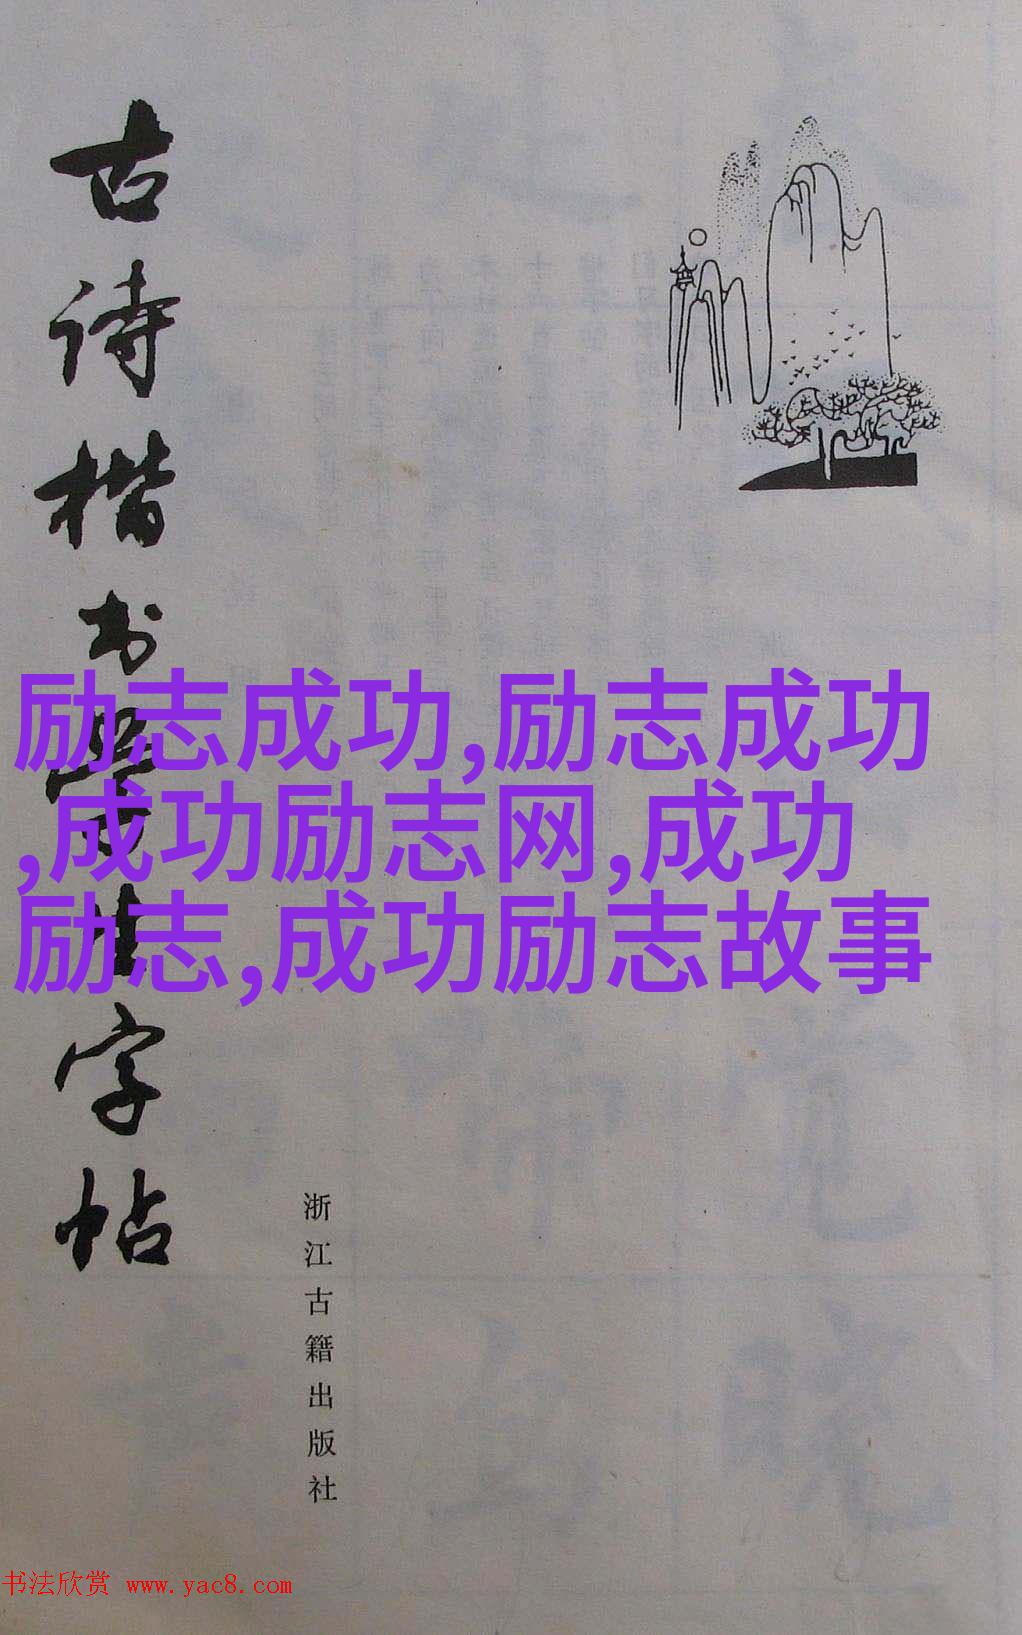 古诗楷书学生字帖
励志成功,励志成功
,成功励志网,成功
励志,成功励志故事
浙江古籍出版社
书法欣赏 www.yac8.com